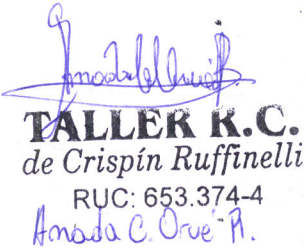 TALLER R.C.
de Crispín Ruffinelli
RUC: 653.374-4
Amada C. Orué R.